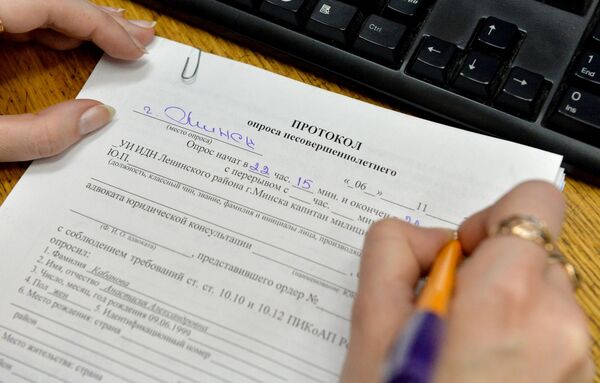 ПРОТОКОЛ
опроса несовершеннолетнего
г. Минск
(место опроса)
"_06_"____11
Опрос начат в 22 час. 15 мин. и окончен
с перерывом с ____ час. ____ мин.
УИ ИДН Ленинского района г.Минска капитан милиции
Ю.П.
(должность, классный чин, звание, фамилия и инициалы лица,
адвоката юридической консультации
(Ф. И. О. адвоката)
, представившего ордер №
с соблюдением требований ст. ст. 10.10 и 10.12 ПИКоАП
опросил:
1. Фамилия Кабанова
2. Имя, отчество Анастасия Александровна
3. Число, месяц, год рождения 09.06.1999
4. Пол жен. 5. Идентификационный номер
6. Место рождения: страна
район
Место жительства: страна
район
Ctrl
End
Enter
0